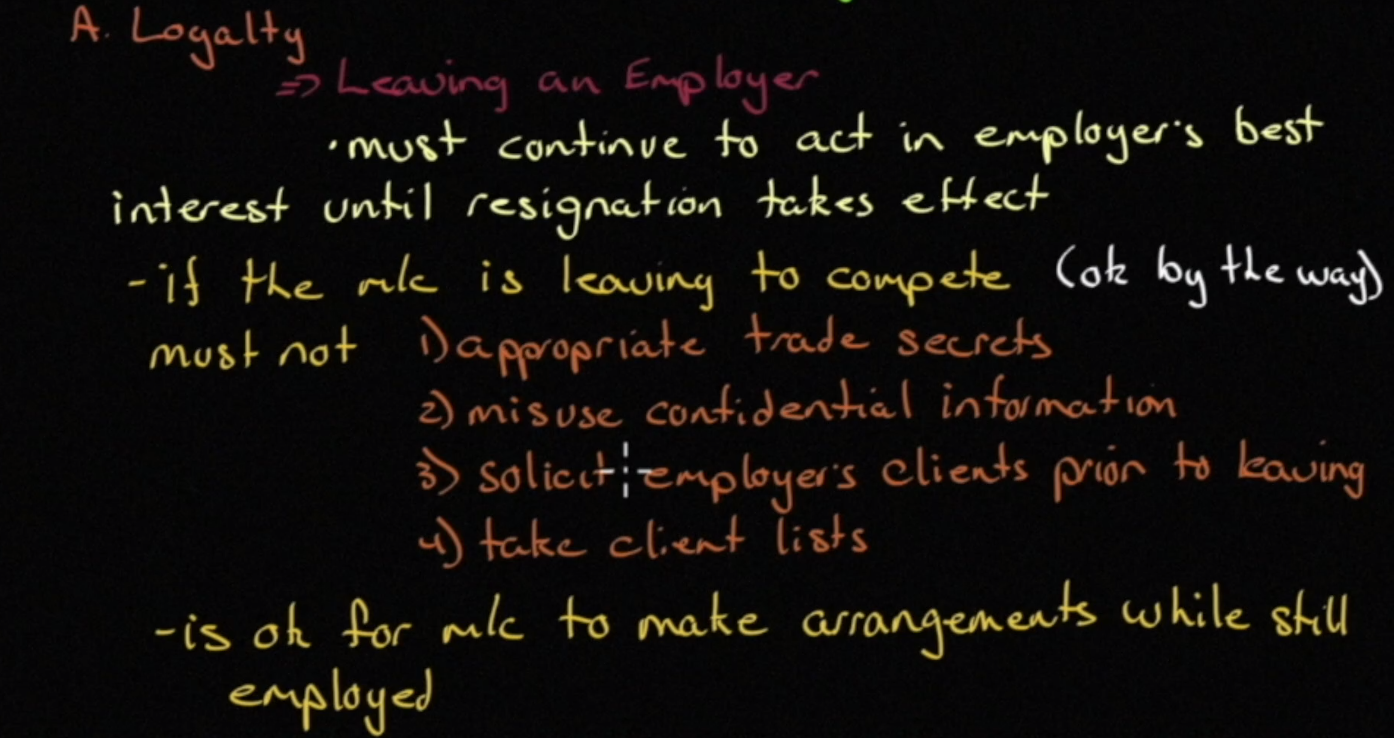 A. Loyalty
=> Leaving an Employer
• must continue to act in employer's best
interest until resignation takes effect
- if the m/c is leaving to compete (ok by the way)
must not 1) appropriate trade secrets
2) misuse confidential information
3) solicit employer's clients prior to leaving
4) take client lists
- is ok for m/c to make arrangements while still
employed